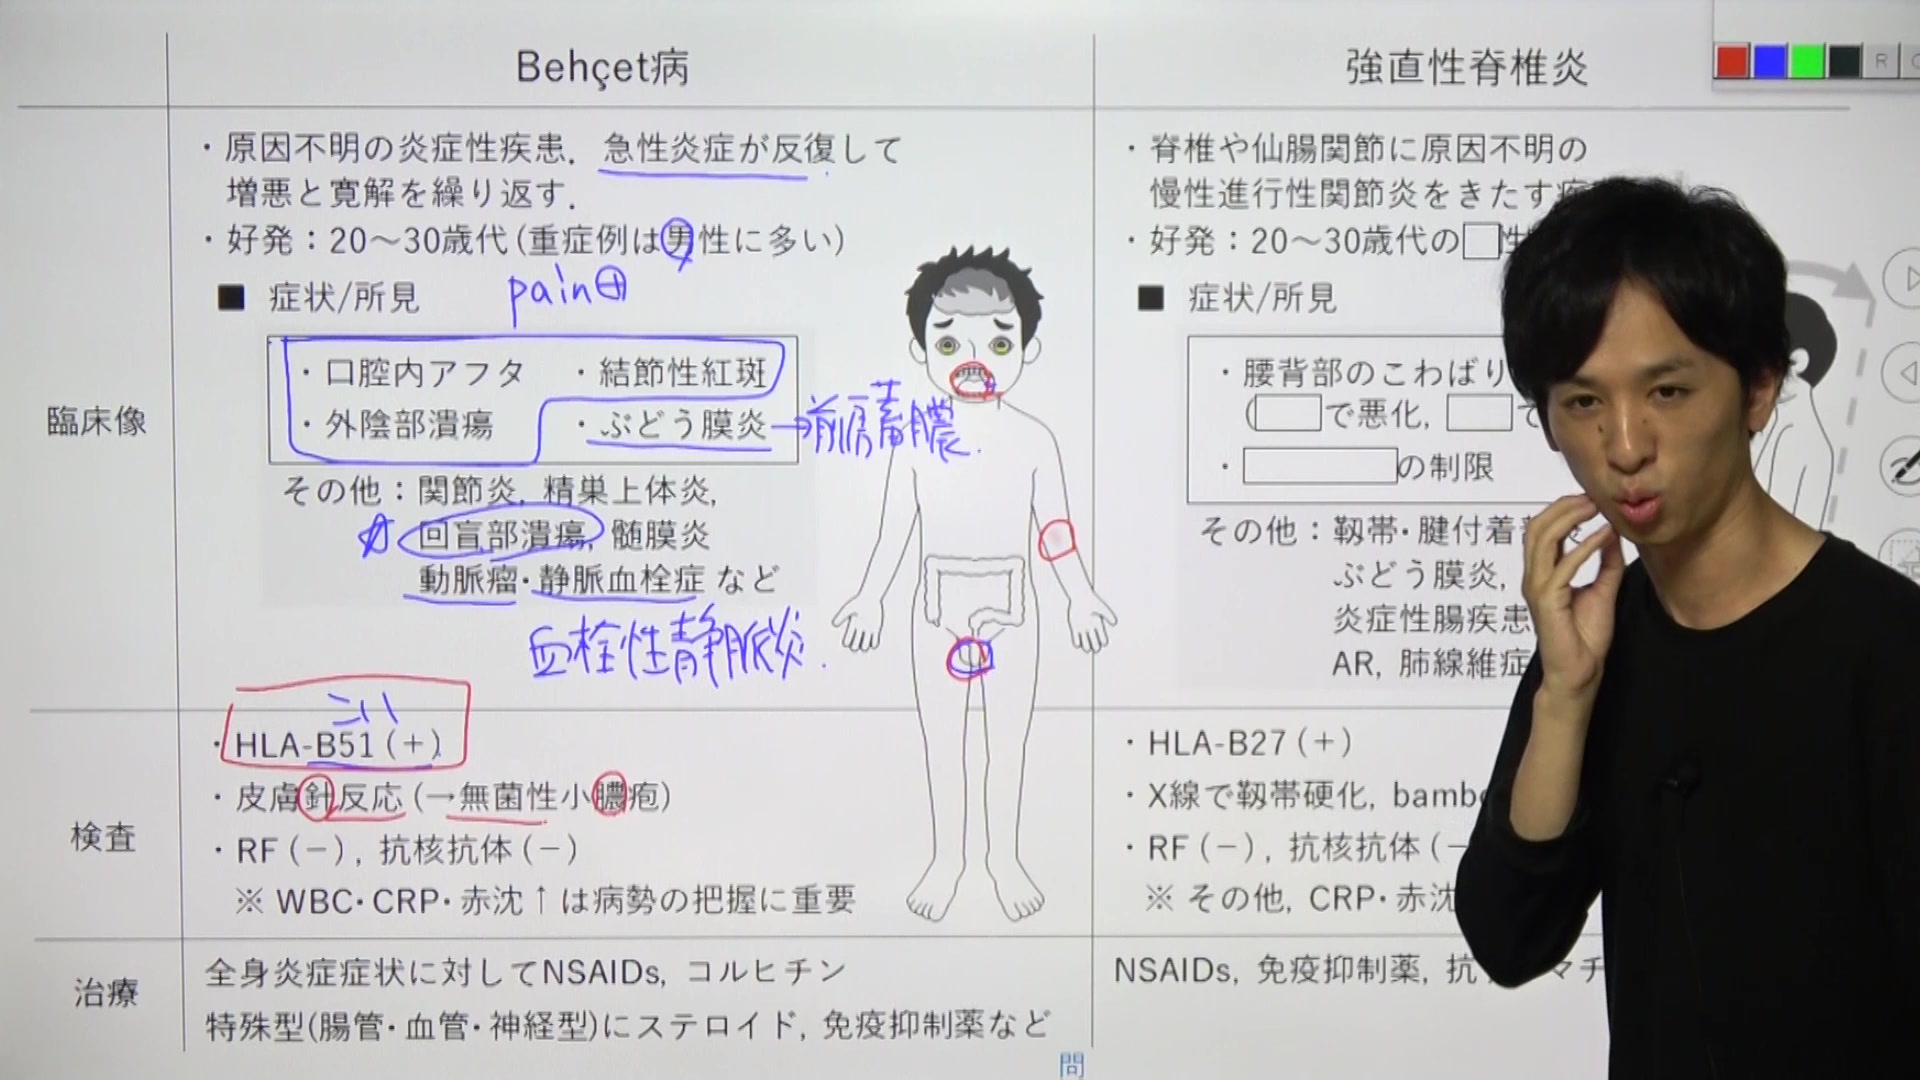 Behçet病
強直性脊椎炎
R
臨床像
・原因不明の炎症性疾患．急性炎症が反復して
増悪と寛解を繰り返す．
・好発：20〜30歳代（重症例は男性に多い）
pain⊕
■ 症状/所見
・口腔内アフタ ・結節性紅斑
・外陰部潰瘍 ・ぶどう膜炎→前房蓄膿．
その他：関節炎，精巣上体炎，
回盲部潰瘍，髄膜炎
動脈瘤・静脈血栓症 など
血栓性静脈炎．
・脊椎や仙腸関節に原因不明の
慢性進行性関節炎をきたす
・好発：20〜30歳代の□性
■ 症状/所見
・腰背部のこわばり
（□で悪化，□で
・□の制限
その他：靱帯・腱付着部
ぶどう膜炎，
炎症性腸疾患
AR，肺線維症
検査
こい
・HLA-B51（＋）
・皮膚針反応（→無菌性小膿疱）
・RF（−），抗核抗体（−）
※ WBC・CRP・赤沈↑は病勢の把握に重要
・HLA-B27（＋）
・X線で靱帯硬化，bamb
・RF（−），抗核抗体（−
※ その他，CRP・赤沈
治療
全身炎症症状に対してNSAIDs，コルヒチン
特殊型(腸管・血管・神経型)にステロイド，免疫抑制薬など
NSAIDs，免疫抑制薬，抗 マチ
問